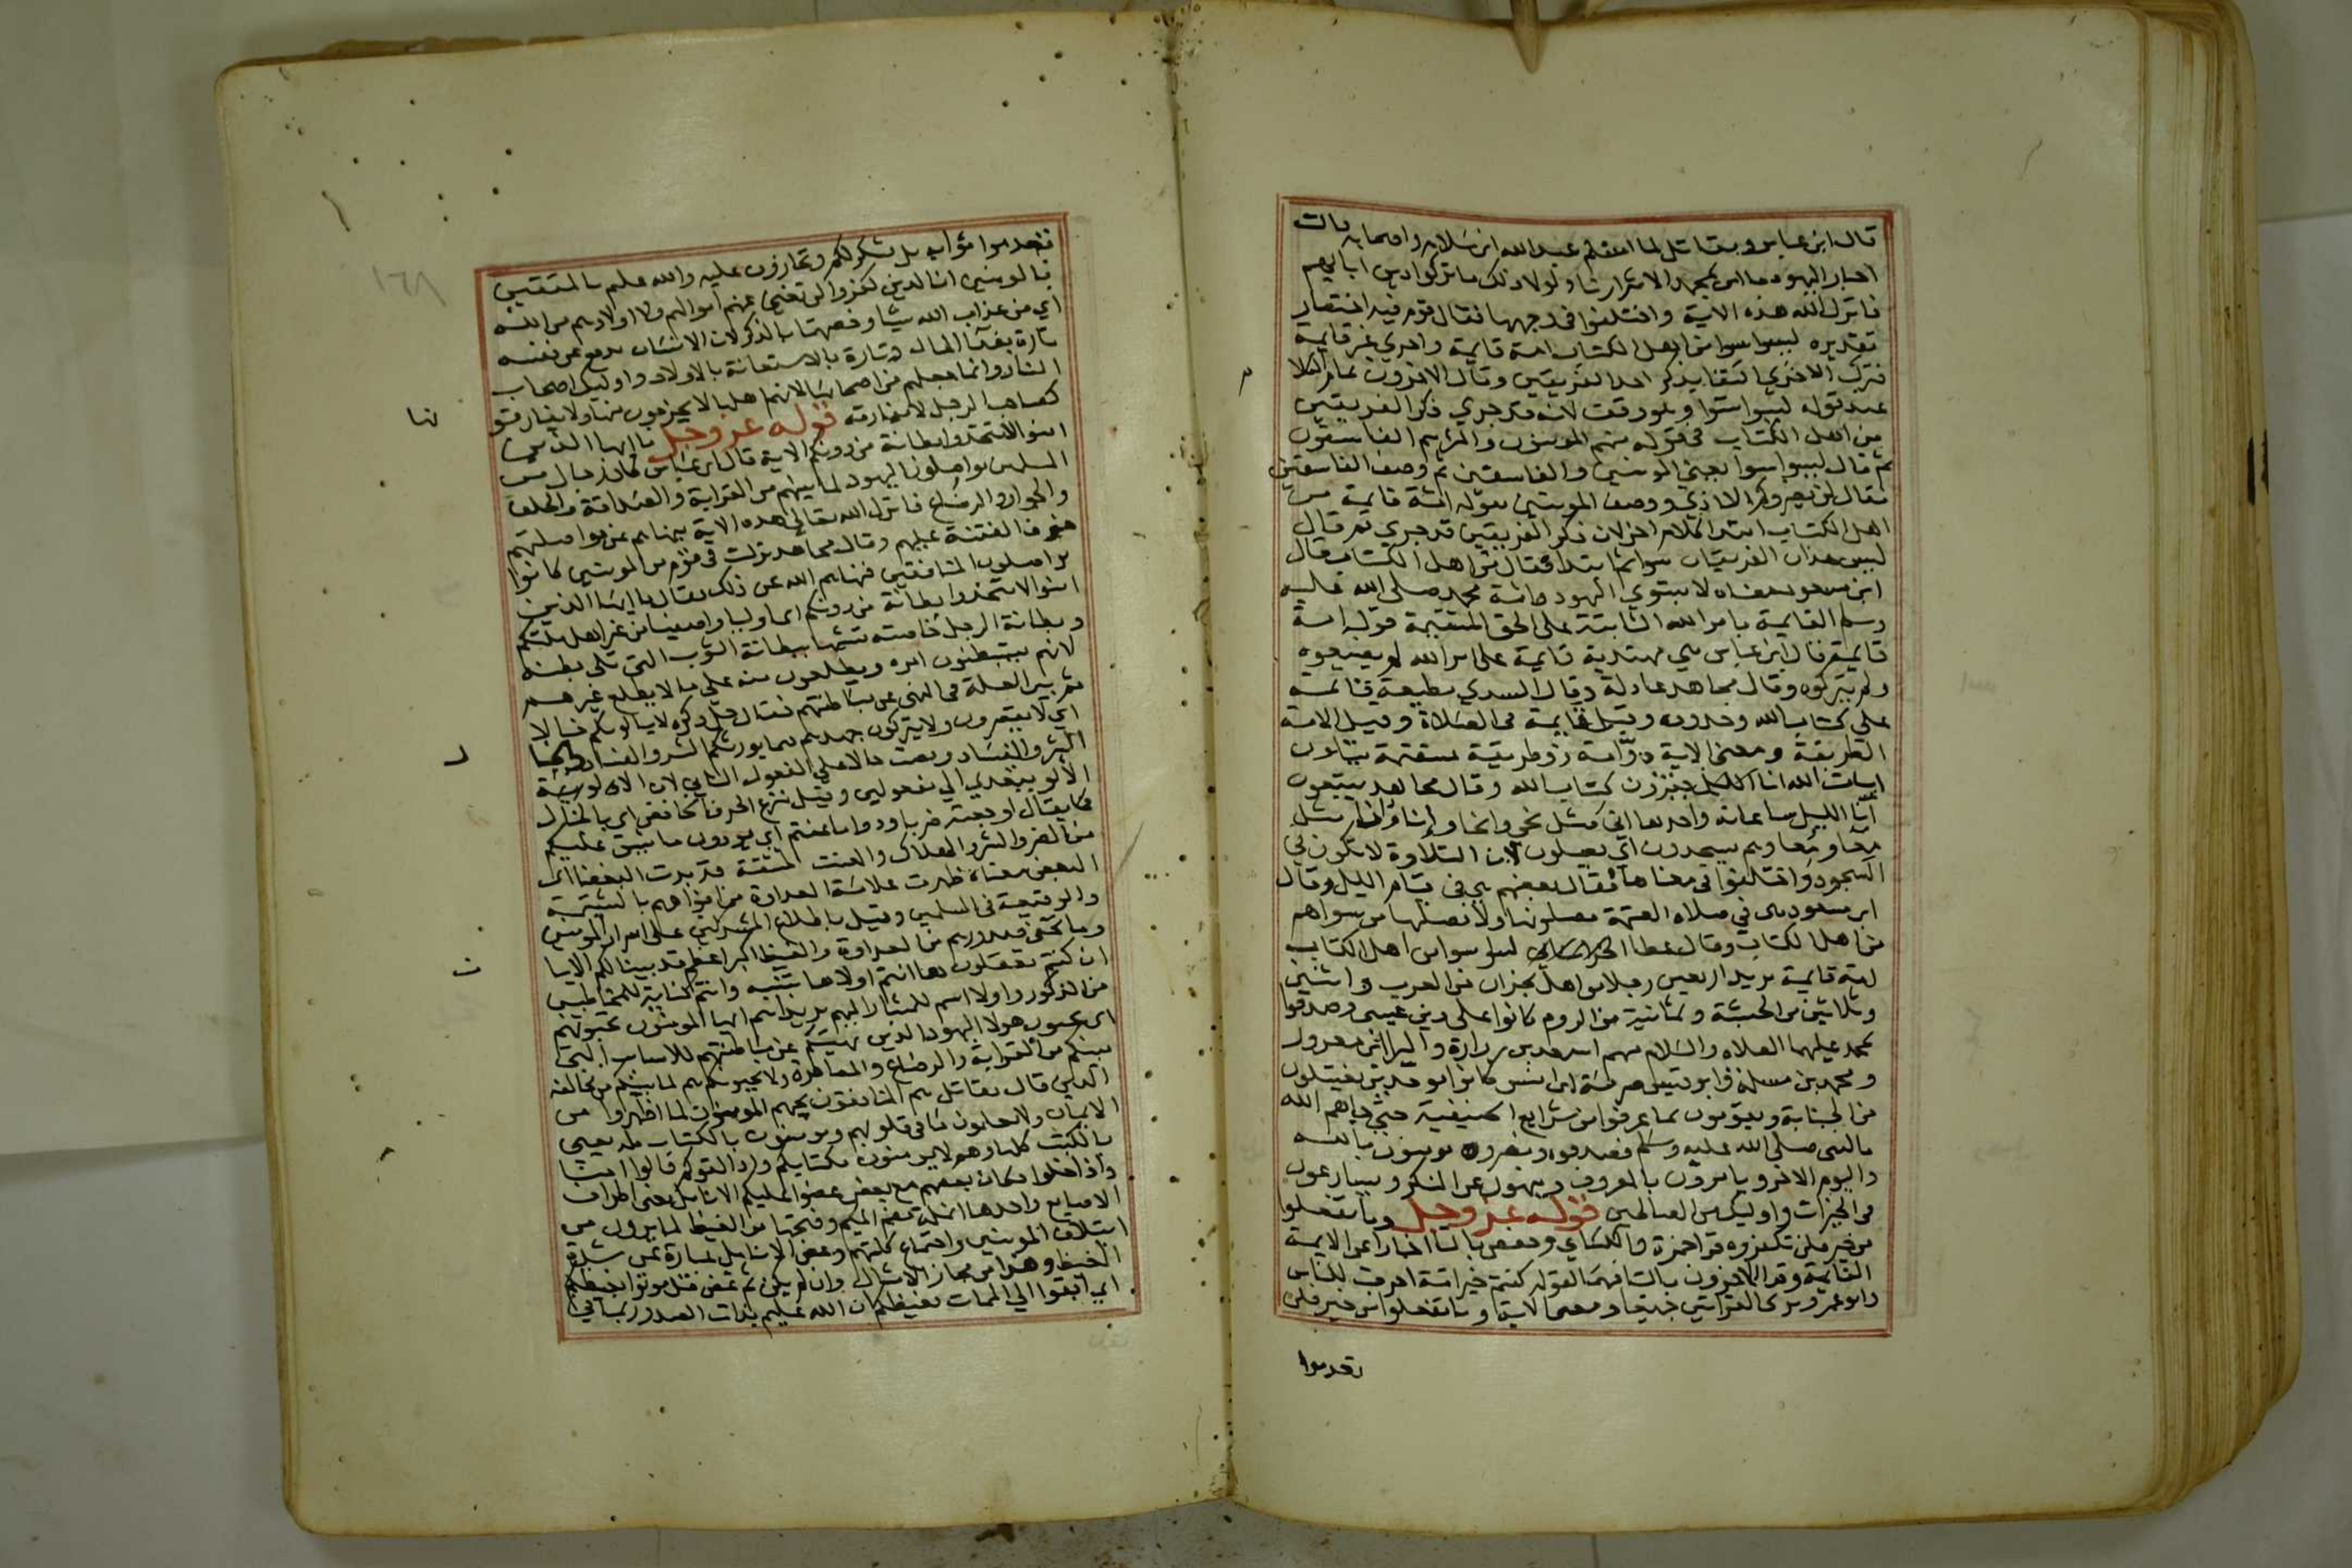 قال ابن عباس ومقاتل لما اسلم عبد الله ابن سلام واصحابه قالت
احبار اليهود ما امن بمحمد الا شرارنا ولولا ذلك ما تركوا دين ابايهم
فانزل الله هذه الاية واختلفوا في وجهها فقال قوم فيه اختصار
تقديره ليسوا سوا من اهل الكتاب امة قايمة واخري غير قايمة
فترك الاخري اكتفا بذكر احد الفريقين وقال الاخرون تمام الكلا
عند قوله ليسوا سوا وهو وقف لانه قد جري ذكر الفريقين
من اهل الكتاب في قوله منهم المومنون واكثرهم الفاسقون
ثم قال ليسوا سوا يعني المومنين والفاسقين ثم وصف الفاسقين
فقال لن يضروكم الا اذي ووصف المومنين بقوله امة قايمة من
اهل الكتاب ابتدا كلام اخر لان ذكر الفريقين قد جري ثم قال
ليس هذان الفريقان سوا ثم ابتدا فقال من اهل الكتاب قال
ابن مسعود معناه لا يستوي اليهود وامة محمد صلى الله عليه
وسلم القايمة بامر الله الثابتة على الحق المستقيمة قوله امة
قايمة قال ابن عباس هي مهتدية قايمة على امر الله لم يضيعوه
ولم يتركوه وقال مجاهد عادلة وقال السدي مطيعة قائمة
على كتاب الله وحدوده وقيل قايمة في الصلاة وقيل الامة
الطريقة ومعنى الاية ذو امة ذو طريقة مستقيمة يتلون
ايات الله انا الليل يقرؤون كتاب الله وقال مجاهد يتبعون
آنا الليل ساعاته واحدها انى مثل نحي وانحا وإنا وانا مثل
معا وامعا وهم يسجدون اي يصلون لان التلاوة لا تكون في
السجود واختلفوا في معناها فقال بعضهم هي في قيام الليل وقال
ابن مسعود هي في صلاة العتمة يصلونها ولا يصليها من سواهم
من اهل الكتاب وقال عطا ليسوا سوا من اهل الكتاب
امة قايمة يريد اربعين رجلا من اهل نجران من العرب واثنين
وثلاثين من الحبشة وثمانية من الروم كانوا على دين عيسى وصدقوا
بمحمد عليهما الصلاه والسلام منهم اسعد بن زرارة والبرا بن معرور
ومحمد بن مسلمة وابو قيس صرمة ابن انس كانوا موحدين يغتسلون
من الجنابة ويقومون بما عرفوا من شرايع الحنيفية حتى جاهم الله
بالنبي صلى الله عليه وسلم فصدقوه ونصروه يومنون بالله
واليوم الاخر ويامرون بالمعروف وينهون عن المنكر ويسارعون
في الخيرات واوليك من الصالحين قوله عز وجل وما تفعلوا
من خير فلن تكفروه قرا حمزة والكساي وحفص باليا اخبارا عن الامة
القايمة وقرا الاخرون بالتا فيهما لقوله كنتم خير امة اخرجت للناس
وابو عمرو يرى القرايتين جميعا ومعنى الاية وما تفعلوا من خير فلن
تعدموا
١٦٨
تعدموا ثوابه بل يشكر لكم وتجازون عليه والله عليم بالمتقين
بالمومنين ان الذين كفروا لن تغني عنهم اموالهم ولا اولادهم من الله
اي من عذاب الله شيا وخصهما بالذكر لان الانسان يدفع عن نفسه
تارة بفدآ المال وتارة بالاستعانة بالاولاد واوليك اصحاب
النار وانما جعلهم من اصحابها لانهم اهلها لا يخرجون منها ولا يفارقو
نها
كصاحب الرجل لا يفارقه قوله عز وجل يا ايها الذين
امنوا لا تتخذوا بطانة من دونكم الاية قال ابن عباس كان رجال من
المسلمين يواصلون اليهود لما بينهم من القرابة والصداقة والحلف
والجوار والرضاع فانزل الله تعالى هذه الاية ينهاهم عن مواصلتهم
خوف الفتنة عليهم وقال مجاهد نزلت في قوم من المومنين كانوا
يواصلون المنافقين فنهاهم الله عن ذلك فقال يا ايها الذين
امنوا لا تتخذوا بطانة من دونكم اي اوليا واصفيا من غير اهل ملتكم
وبطانة الرجل خاصته تشبيها ببطانة الثوب التي تلي بطنه
لانهم يستبطنون امره ويطلعون منه على ما لا يطلع غيرهم
ثم بين العلة في النهي عن مباطنتهم فقال جل ذكره لا يالونكم خبالا
اي لا يقصرون ولا يتركون جهدهم فيما يورثكم الشر والفساد والخبا
ل
الشر والفساد ونصب خبالا على المفعول الثاني لان
الالو يتعدي الى مفعولين وقيل بنزع الحرف الخافض اي بالخبال
كما يقال اوجعته ضربا ودوا ما عنتم اي يودون ما يشق عليكم
من الضر والشر والهلاك والعنت المشقة قد بدت البغضا اي
البغض معناه ظهرت علامة العداوة من افواههم بالشتيمة
والوقيعة في المسلمين وقيل باطلاع المشركين على اسرار المومنين
وما تخفي صدورهم من العداوة والغيظ اكبر اعظم قد بينا لكم الايا
ت
ان كنتم تعقلون ها انتم اولا ها تنبيه وانتم كناية للمخاطبين
من الذكور واولا اسم للمشار اليهم يريد انتم ايها المومنون تحبونهم
اي تحبون هولا اليهود الذين نهيتكم عن مباطنتهم للاسباب التي
بينكم من القرابة والرضاع والمصاهرة ولا يحبونكم هم لما بينكم من مخالفة
الدين قال مقاتل هم المنافقون يحبهم المومنون لما اظهروا من
الايمان ولا يعلمون ما في قلوبهم وتومنون بالكتاب كله يعني
بالكتب كلها وهم لا يومنون بكتابكم واذا لقوكم قالوا امنا
واذا خلوا وكان بعضهم مع بعض عضوا عليكم الانامل يعني اطراف
الاصابع واحدها انملة بضم الميم وفتحها من الغيظ لما يرون من
ايتلاف المومنين واجتماع كلمتهم وعض الانامل عبارة عن شدة
الغيظ وهذا من مجاز الامثال وان لم يكن ثم عض قل موتوا بغيظكم
اي ابقوا الى الممات بغيظكم ان الله عليم بذات الصدور بما في